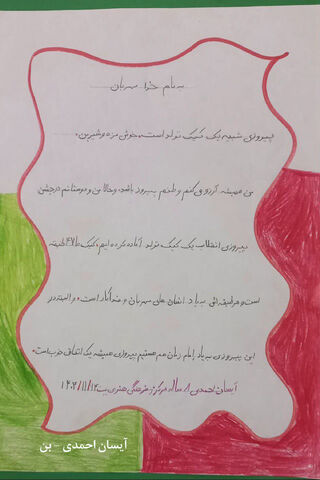 به نام خدا مهربان
پیروزی شبیه یک کیک تولد است، خوش مزه و شیرین.
من همیشه آرزو می کنم وطنم پیروز باشد. و حالا من و دوستانم در جشن
پیروزی انقلاب یک کیک تولد آماده کرده ایم، کیک ما ۴۷ طبقه
است و هر طبقه اش به یاد انسان های مهربان و فداکار است. و البته در
این پیروزی به یاد امام زمان هم هستیم پیروزی همیشه یک اتفاق خوب است
آیسان احمدی ۸ ساله مرکز فرهنگی هنری بن ۱۴۰۴/۱۱/۱۲
آیسان احمدی - بن